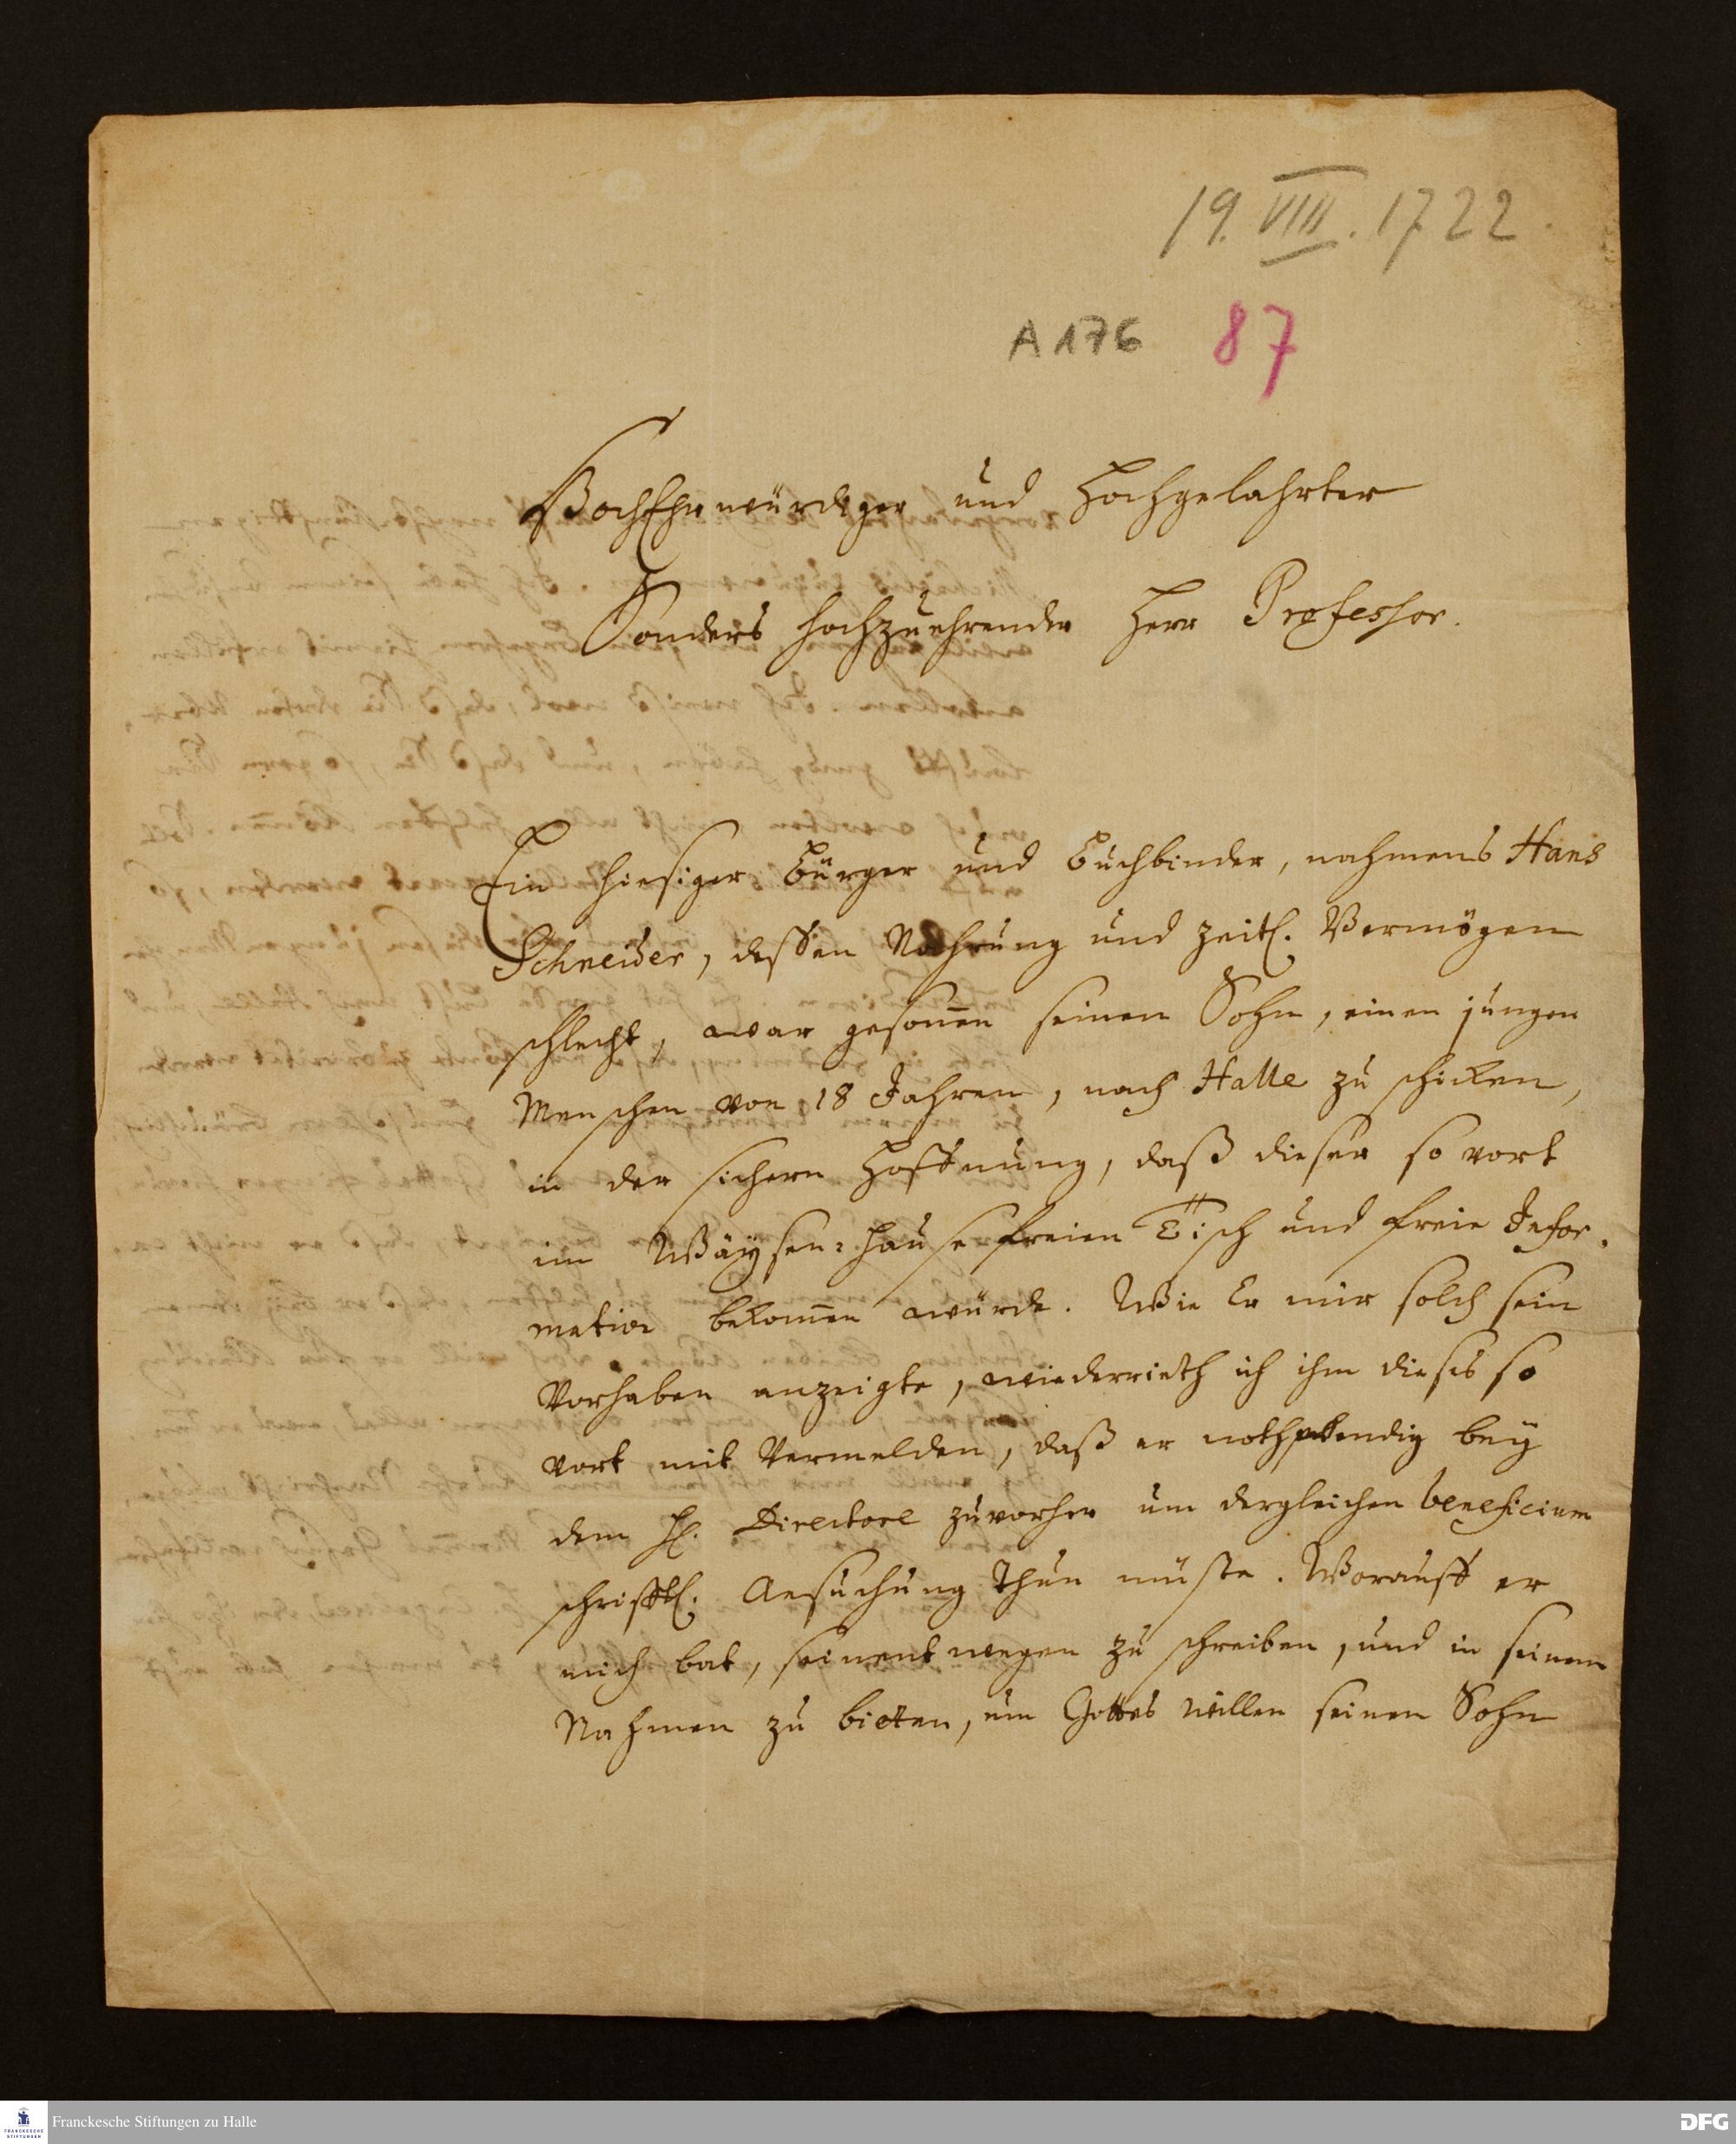 19. VIII. 1722.
A 176 87
HochEhrwürdiger und Hochgelahrter
Sonders hochzuehrender Herr Professor.
Ein hiesiger Bürger und Buchbinder, nahmens Hans
Schneider, dessen Nahrung und zeitl. Vermögen
schlecht, war gesoñen seinen Sohn, einen jungen
Menschen von 18 Jahren, nach Halle zu schicken,
in der sichern Hoffnung, daß dieser so vort
im Wäysen-Hause freien Tisch und freie Infor-
mation bekom̃en würde. Wie Er mir solch sein
Vorhaben anzeigte, wiederrieth ich ihm dieses so
vort mit Vermelden, daß er nothwendig bey
dem H. Directore zuvorher um dergleichen beneficium
schrifftl. Ansuchung thun müste. Worauff er
mich bat, seinentwegen zu schreiben, und in seinem
Nahmen zu bitten, um Gottes willen seinen Sohn
Franckesche Stiftungen zu Halle
FRANCKESCHE
STIFTUNGEN
DFG